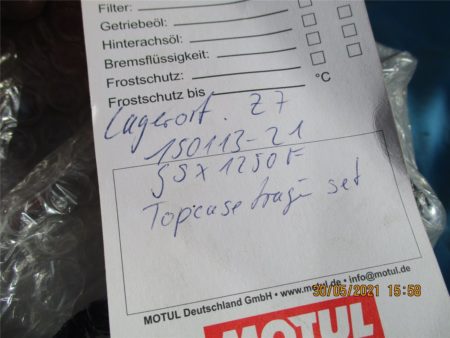 Filter:
Getriebeöl:
Hinterachsöl:
Bremsflüssigkeit:
Frostschutz:
Frostschutz bis °C
Lagerort. Z7
150113-21
GSX 1250F
Topcase träger set
MOTUL Deutschland GmbH • www.motul.de • info@motul.de
30/05/2021 15:58
MOTUL